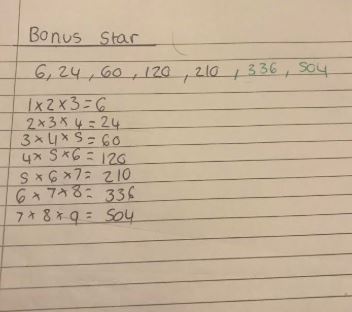 Bonus Star
6, 24, 60, 120, 210, 336, 504
1×2×3=6
2×3×4=24
3×4×5=60
4×5×6=120
5×6×7=210
6×7×8=336
7×8×9=504